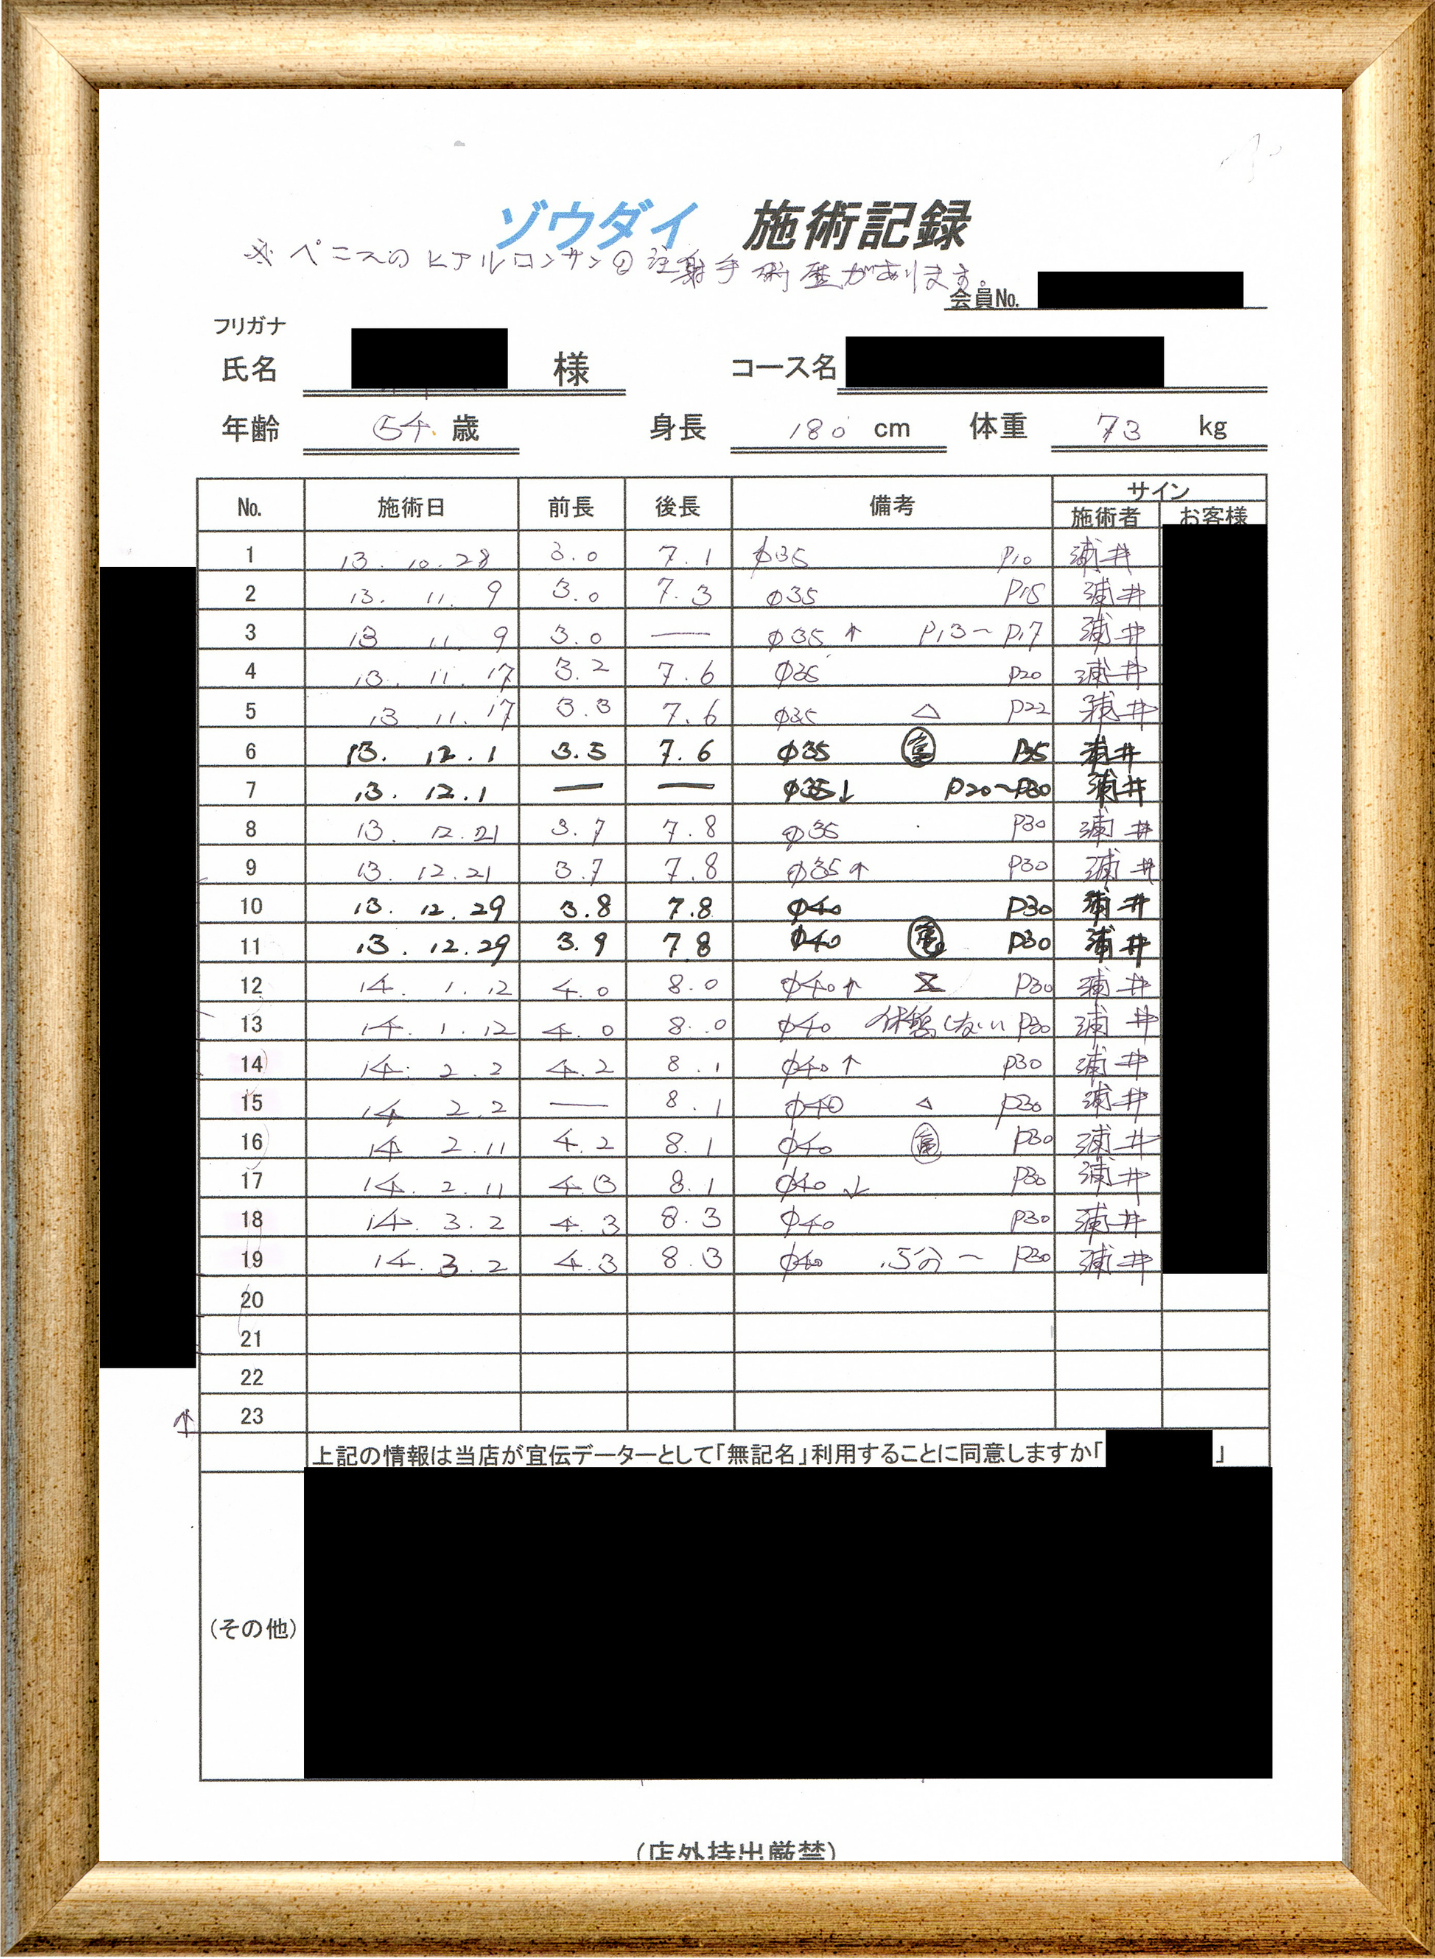 ゾウダイ 施術記録
※ペニスのヒアルロンサンの注射手術歴があります。
会員No.
フリガナ
氏名 様 コース名
年齢 54 歳 身長 180 cm 体重 73 kg
No. 施術日 前長 後長 備考 サイン
施術者 お客様
1 13. 10. 28 3.0 7.1 φ35 P10 浦井
2 13. 11. 9 3.0 7.3 φ35 P15 浦井
3 13 11. 9 3.0 — φ35 ↑ P13~P17 浦井
4 13. 11. 17 3.2 7.6 φ35 P20 浦井
5 13 11. 17 3.3 7.6 φ35 △ P22 浦井
6 13. 12. 1 3.5 7.6 φ35 P35 浦井
7 13. 12. 1 — — φ35↓ P20~P30 浦井
8 13. 12. 21 3.7 7.8 φ35 P30 浦井
9 13. 12. 21 3.7 7.8 φ35↑ P30 浦井
10 13. 12. 29 3.8 7.8 φ40 P30 浦井
11 13. 12. 29 3.9 7.8 φ40 P30 浦井
12 14. 1. 12 4.0 8.0 φ40↑ P30 浦井
13 14. 1. 12 4.0 8.0 φ40 しない P30 浦井
14 14. 2. 2 4.2 8.1 φ40↑ P30 浦井
15 14 2. 2 — 8.1 φ40 △ P30 浦井
16 14 2. 11 4.2 8.1 φ40 P30 浦井
17 14. 2. 11 4.3 8.1 φ40 ↓ P30 浦井
18 14. 3. 2 4.3 8.3 φ40 P30 浦井
19 14. 3. 2 4.3 8.3 φ40 15分~ P30 浦井
20
21
22
↑ 23
上記の情報は当店が宣伝データーとして「無記名」利用することに同意しますか「 」
(その他)
(店外持出厳禁)